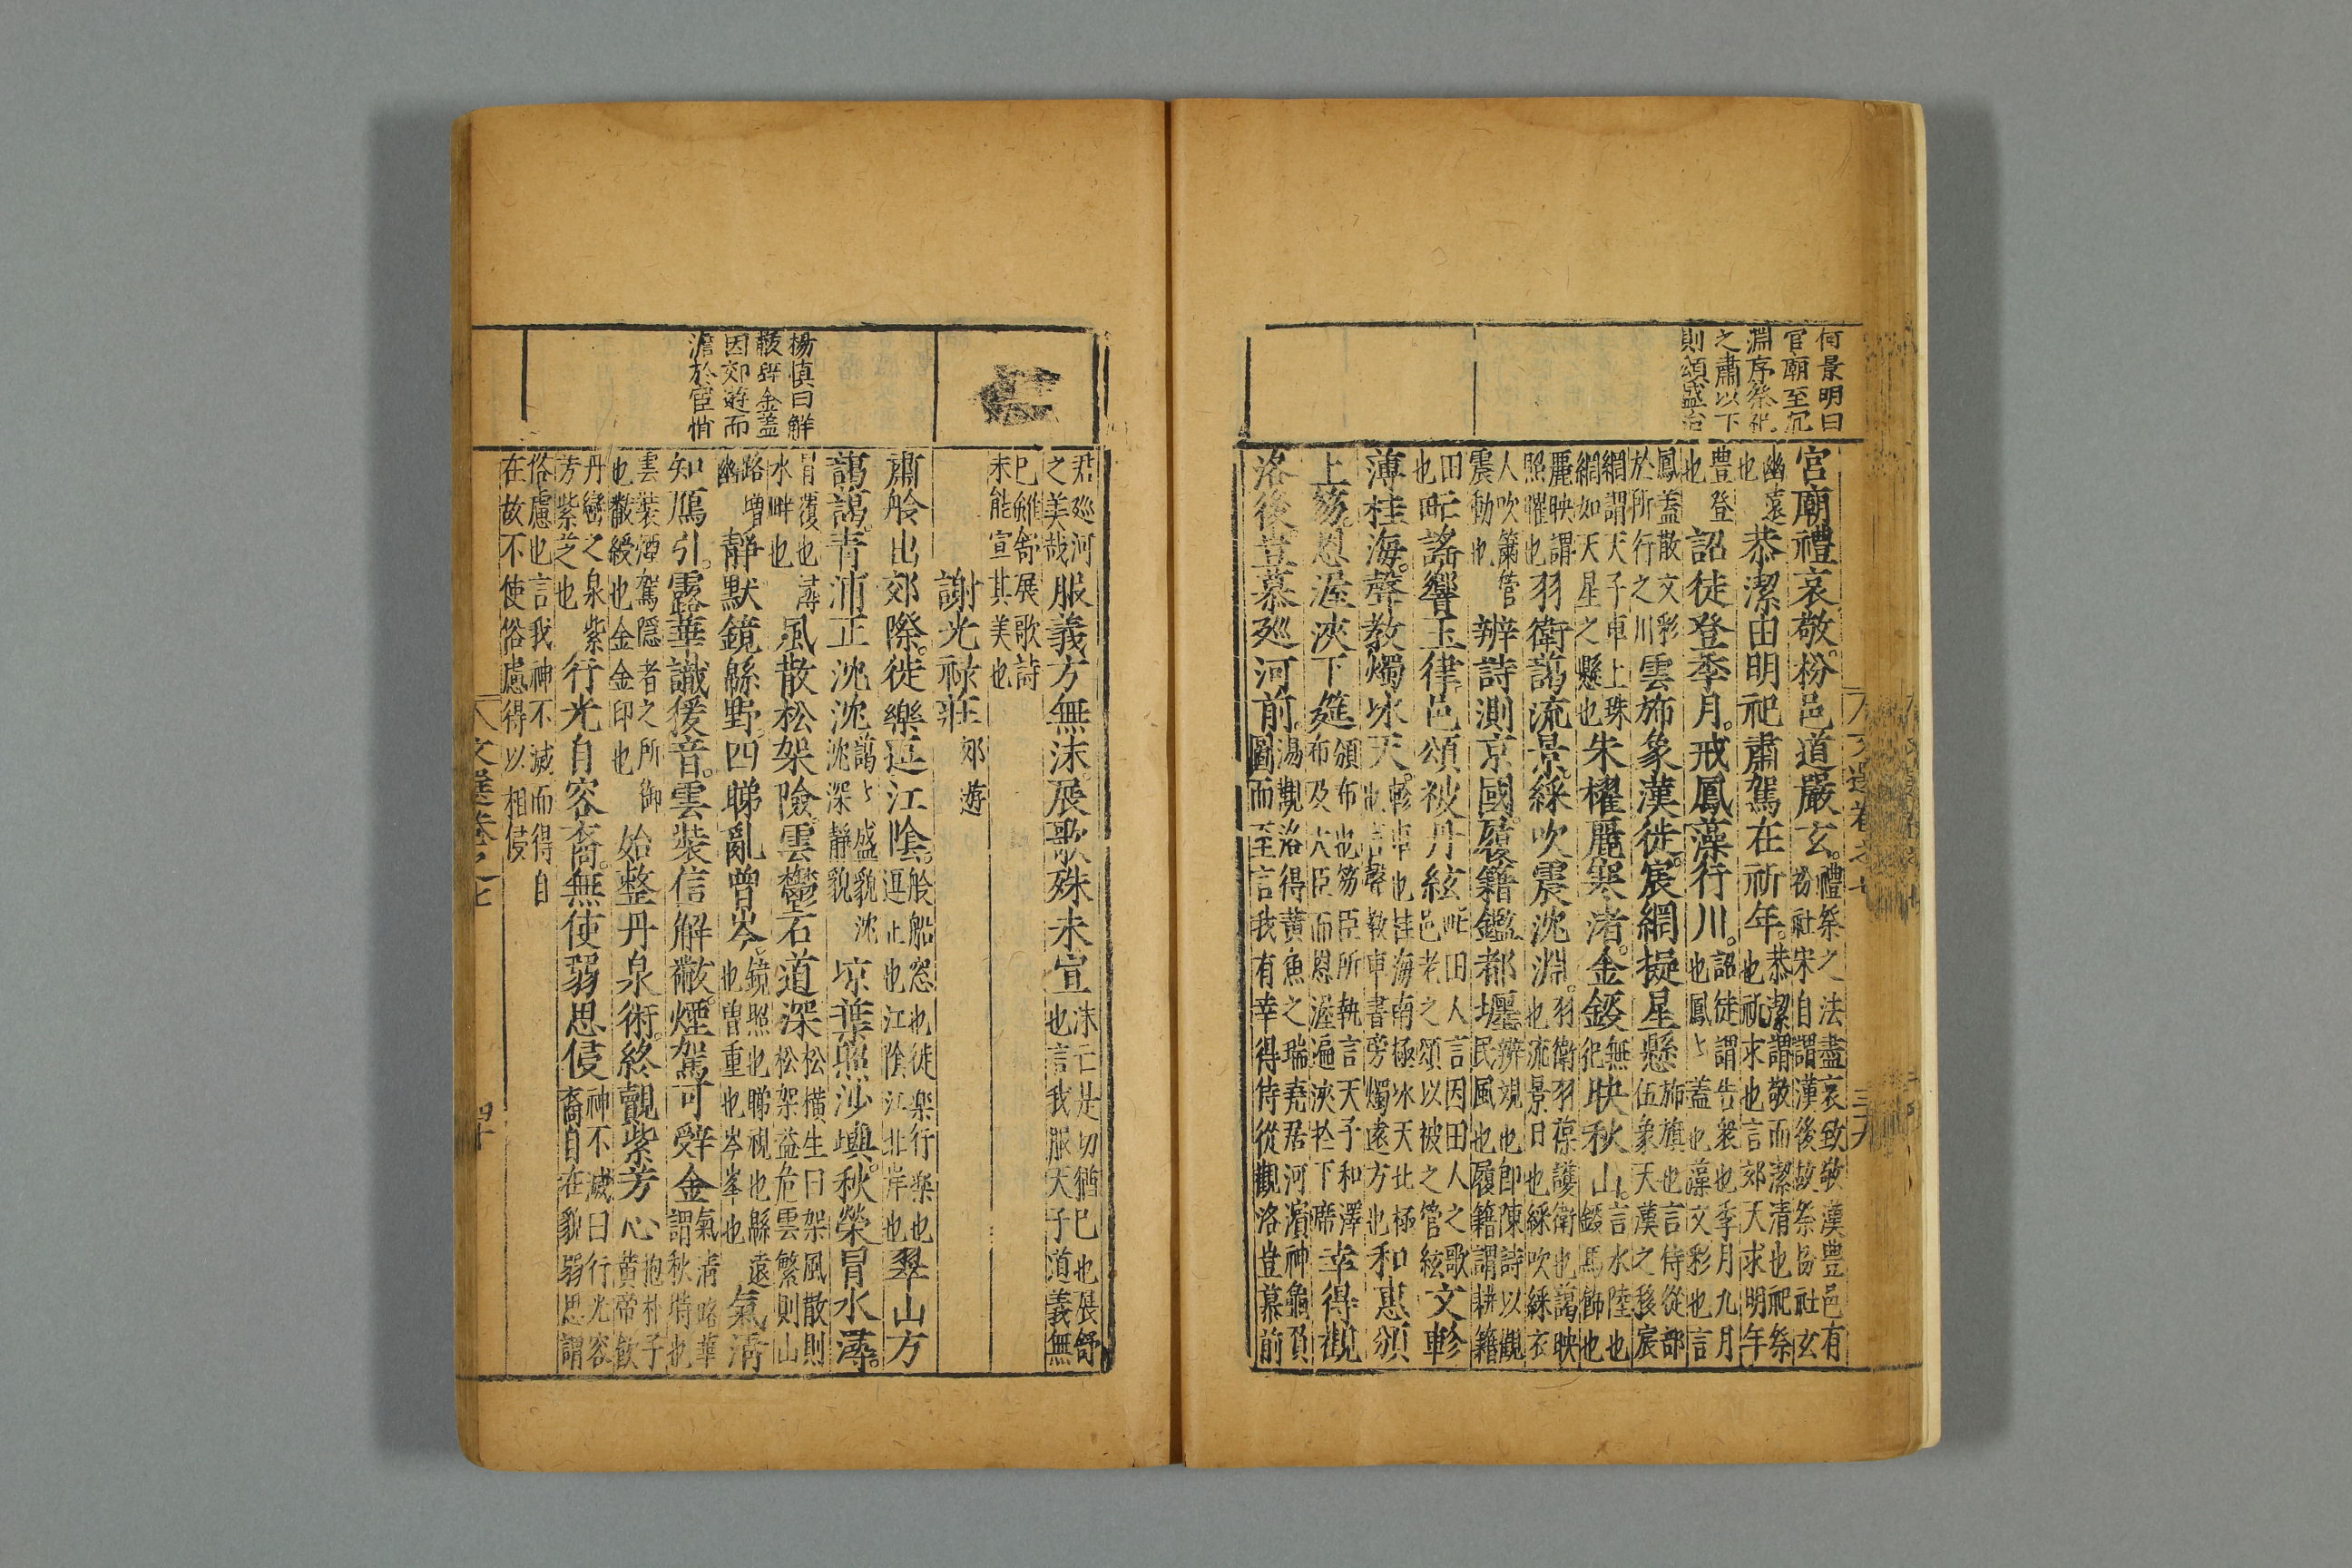 何景明曰
宮廟至冗
淵序祭祀
之肅以下
則頌盛治
宮廟禮哀敬枌邑道嚴玄禮祭之法盡哀致敬漢豐邑有
枌社宋自謂漢後故祭枌社玄
幽遠也恭潔由明祀肅駕在祈年恭潔謂敬而潔清也祀祭
也祈求也言郊天求明年
豊登也詔徒登季月戒鳳藻行川詔徒謂告衆也季月九月
也鳳〻蓋也藻文彩也言
鳳蓋散文彩於所行之川雲斾象漢徙宸網擬星懸斾旗也言侍從部
伍象天漢之移宸
網謂天子車上珠網如天星之懸也朱櫂麗寒渚金鍐映秋山言水陸也
鍐馬飾也
麗映謂照燿也羽衛藹流景綵吹震沈淵羽衛羽葆護衛也藹映
也流景日也綵吹綵衣
人吹簫管震動也辨詩測京國履籍鑑都壥辨視也即陳詩以觀
民風也履籍謂耕籍
田也甿謠響玉律邑頌被丹絃甿田人言因田人之歌
邑老之頌以被之管絃文軫
薄桂海聲教燭氷天軫車也桂海南極氷天北極
也言聲教車書旁燭遠方也和惠頒
上笏恩渥浹下筵頒布也笏臣所執言天子和澤
布及大臣而恩渥遍浹於下席幸得觀
洛後豈慕廵河前湯觀洛得黃魚之瑞堯居河濱神龜負
圖而至言我有幸得侍從觀洛豈慕前
君廵河之美哉服義方無沫展歌殊未宣沫亡是切猶已也展舒
也言我服天子道義無
已雖舒展歌詩未能宣其美也
謝光祿莊郊遊
肅舲出郊際徙樂逗江陰舲船窓也徒樂行樂也
逗止也江陰江北岸也翠山方
藹藹青浦正沈沈藹〻盛貌沈
沈深靜貌凉葉照沙嶼秋榮冒水潯
冒覆也潯水畔也風散松架險雲鬱石道深松橫生曰架風散則
松架益危雲繁則山
路增幽靜默鏡緜野四睇亂曾岑鏡照也睇視也緜遠
也曾重也岑峯也氣清
知鴈引露華識猨音氣清露華
謂秋時也雲裝信解黻煙駕可辤金
雲裝煙駕隱者之所御
也黻綬也金金印也始整丹泉術終覿紫芳心抱朴子
黃帝飲
丹巒之泉紫芳紫芝也行光自容裔無使弱思侵神不滅曰行光容
裔自在貌弱思謂
俗慮也言我神不滅而得自
在故不使俗慮得以相侵
楊慎曰解
黻辤金蓋
因郊遊而
澹於宦情
文選卷之七
四十